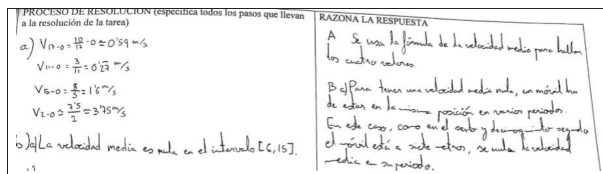 PROCESO DE RESOLUCIÓN (especifica todos los pasos que llevan
a la resolución de la tarea)
a) V₁₇₋₀ = 10/17 · 0 = 0'59 m/s
V₁₁₋₀ = 3/11 = 0'27 m/s
V₅₋₀ = 8/5 = 1'6 m/s
V₂₋₀ = 7'5/2 = 3'75 m/s
b) a) La velocidad media es nula en el intervalo [6,15].
RAZONA LA RESPUESTA
A Se usa la fórmula de la velocidad media para hallar
los cuatro valores.
B a) Para tener una velocidad media nula, un móvil ha
de estar en la misma posición en varios periodos.
En este caso, como en el sexto y decimoquinto segundo
el móvil está a siete metros, se nula la velocidad
media en su periodo.